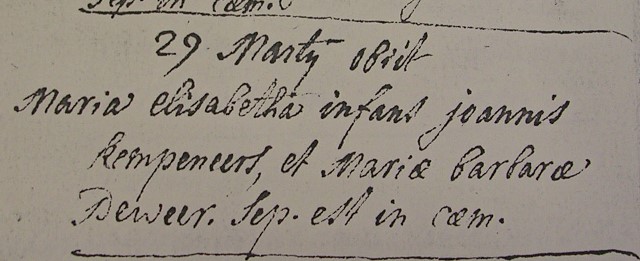 Sep. in cœm.
29 Martÿ obiit
Maria elisabetha infans joannis
kempeneers, et Mariæ barbaræ
Deweer. Sep. est in cœm.